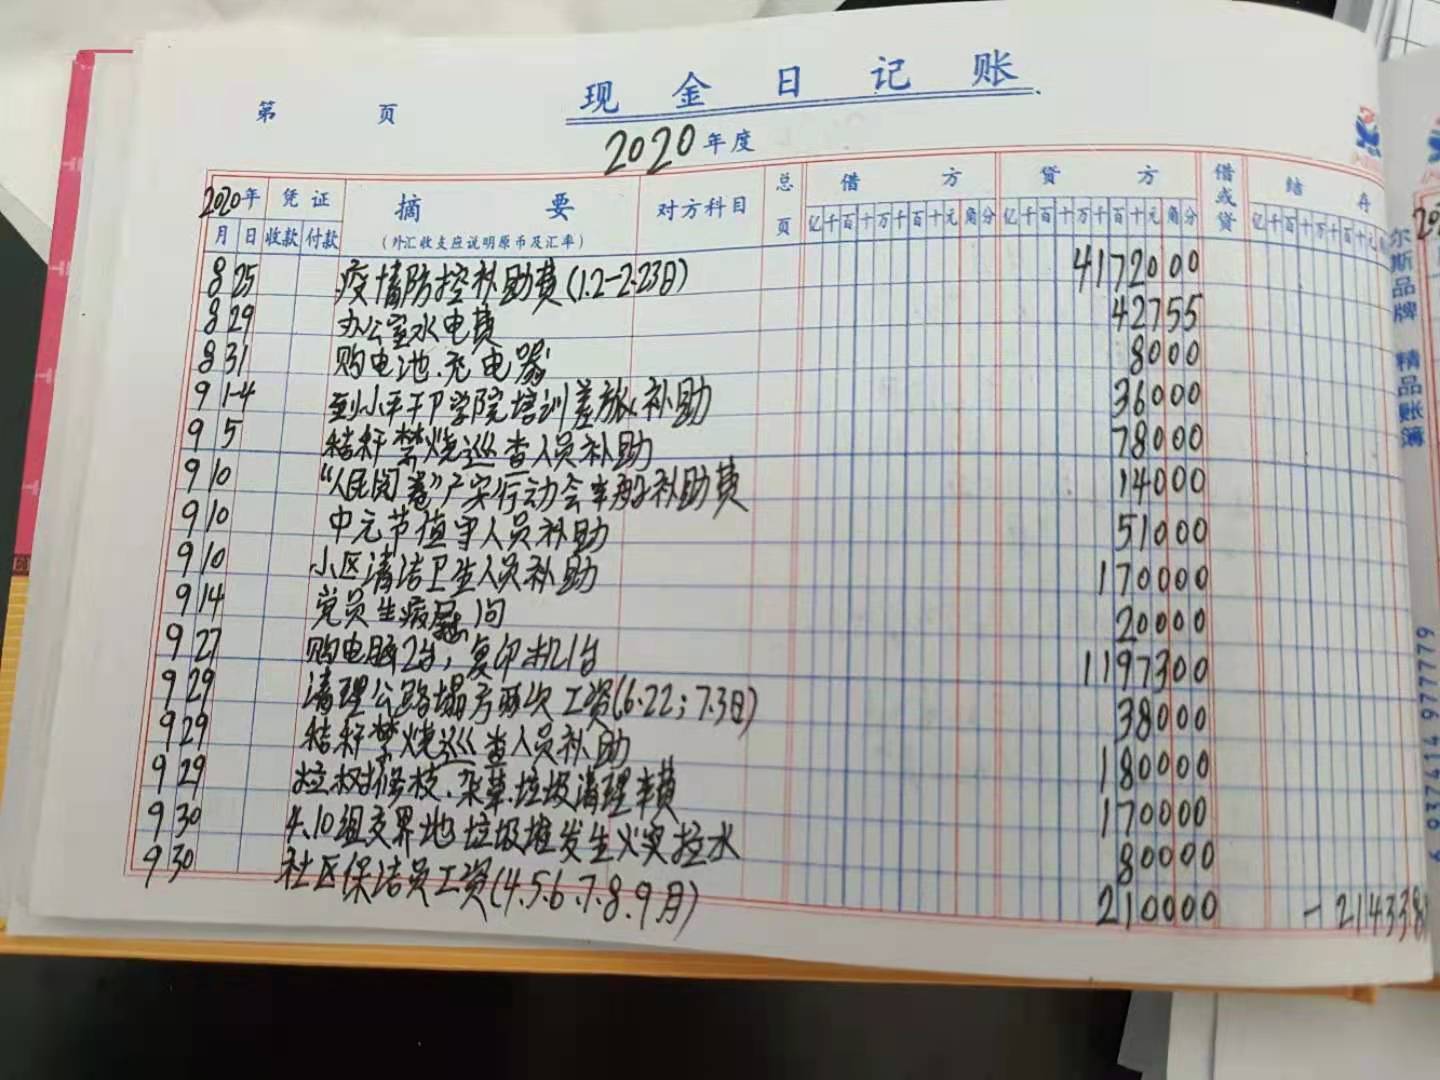 现金日记账
第 页
2020年度
2020年 凭证 摘要 对方科目 总页 借方 贷方 借或贷 结存
月 日 收款 付款 (外汇收支应说明原币及汇率) 亿千百十万千百十元角分 亿千百十万千百十元角分 亿千百十万千百十元
8 25 疫情防控补助费(1.2-2.23日) 4172000
8 29 办公室水电费 42755
8 31 购电池.充电器 8000
9 1-4 到小平干部学院培训差旅补助 36000
9 5 秸秆禁烧巡查人员补助 78000
9 10 "人民阅卷"广安行动会车船补助费 14000
9 10 中元节值守人员补助 51000
9 10 小区清洁卫生人员补助 170000
9 14 党员生病慰问 20000
9 27 购电脑2台,复印机1台 1197300
9 29 清理公路塌方两次工资(6.22;7.3日) 38000
9 29 秸秆禁烧巡查人员补助 180000
9 29 拉树修枝.杂草.垃圾清理车费 170000
9 30 4、10组交界地垃圾堆发生火灾拉水 80000
9 30 社区保洁员工资(4.5.6.7.8.9.月) 210000 -214338
尔斯品牌 精品账簿
6 937414 977779